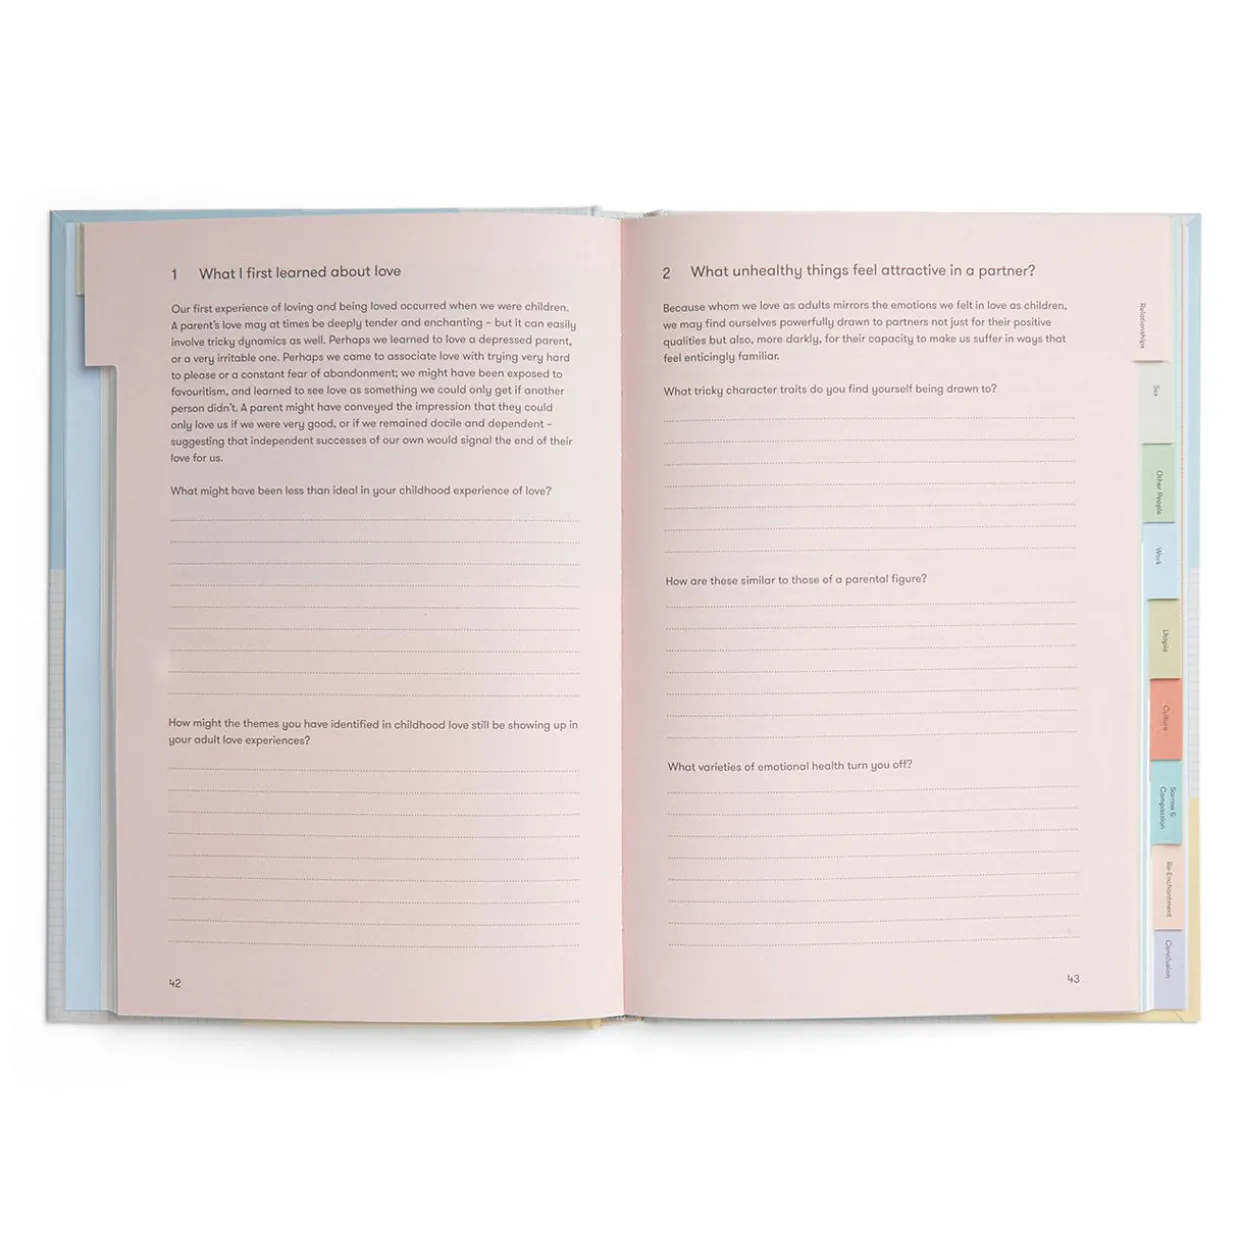 1 What I first learned about love
Our first experience of loving and being loved occurred when we were children.
A parent's love may at times be deeply tender and enchanting – but it can easily
involve tricky dynamics as well. Perhaps we learned to love a depressed parent,
or a very irritable one. Perhaps we came to associate love with trying very hard
to please or a constant fear of abandonment; we might have been exposed to
favouritism, and learned to see love as something we could only get if another
person didn't. A parent might have conveyed the impression that they could
only love us if we were very good, or if we remained docile and dependent –
suggesting that independent successes of our own would signal the end of their
love for us.
What might have been less than ideal in your childhood experience of love?
How might the themes you have identified in childhood love still be showing up in
your adult love experiences?
42
2 What unhealthy things feel attractive in a partner?
Because whom we love as adults mirrors the emotions we felt in love as children,
we may find ourselves powerfully drawn to partners not just for their positive
qualities but also, more darkly, for their capacity to make us suffer in ways that
feel enticingly familiar.
What tricky character traits do you find yourself being drawn to?
How are these similar to those of a parental figure?
What varieties of emotional health turn you off?
43
Relationships
Sex
Other People
Work
Utopia
Culture
Sorrow &
Compassion
Re-Enchantment
Conclusion